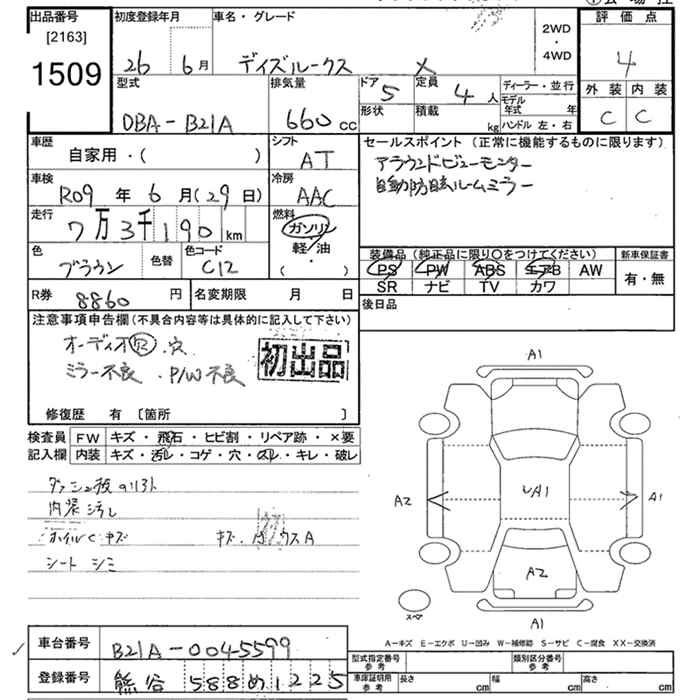 出品番号
[2163]
1509
初度登録年月
26 6月
車名・グレード
デイズルークス X
2WD
・
4WD
評価点
4
外装 内装
C C
型式
DBA-B21A
排気量
660 cc
ドア 5
形状
定員 4 人
積載 kg
ディーラー・並行
モデル年式 年
ハンドル 左・右
車歴
自家用・( )
シフト
AT
車検
R09年 6月(29日)
冷房
AAC
走行
7万3千190 km
燃料
ガソリン
軽/油
( ・ )
色
ブラウン
色替
色コード
C12
R券 8860 円
名変期限 月 日
セールスポイント(正常に機能するものに限ります)
アラウンドビューモニター
自動防眩ルームミラー
装備品(純正品に限り○をつけてください)
PS PW ABS エアB AW
SR ナビ TV カワ
新車保証書
有・無
後日品
注意事項申告欄(不具合内容等は具体的に記入して下さい)
オーディオ穴
ミラー不良 . P/W不良
初出品
修復歴 有 [箇所 ]
検査員 FW キズ・飛石・ヒビ割・リペア跡・×要
記入欄 内装 キズ・汚レ・コゲ・穴・スレ・キレ・破レ
内装 汚レ
ホイルC キズ
シート シミ
A1
A2 UA1 A1
A2
スペア
A1
A-キズ E-エクボ U-凹み W-補修跡 S-サビ C-腐食 XX-交換済
車台番号 B21A-0045599
登録番号 熊谷 588め1225
型式指定番号 参考
類別区分番号 参考
車庫証明用 参考 長さ cm 幅 cm 高さ cm